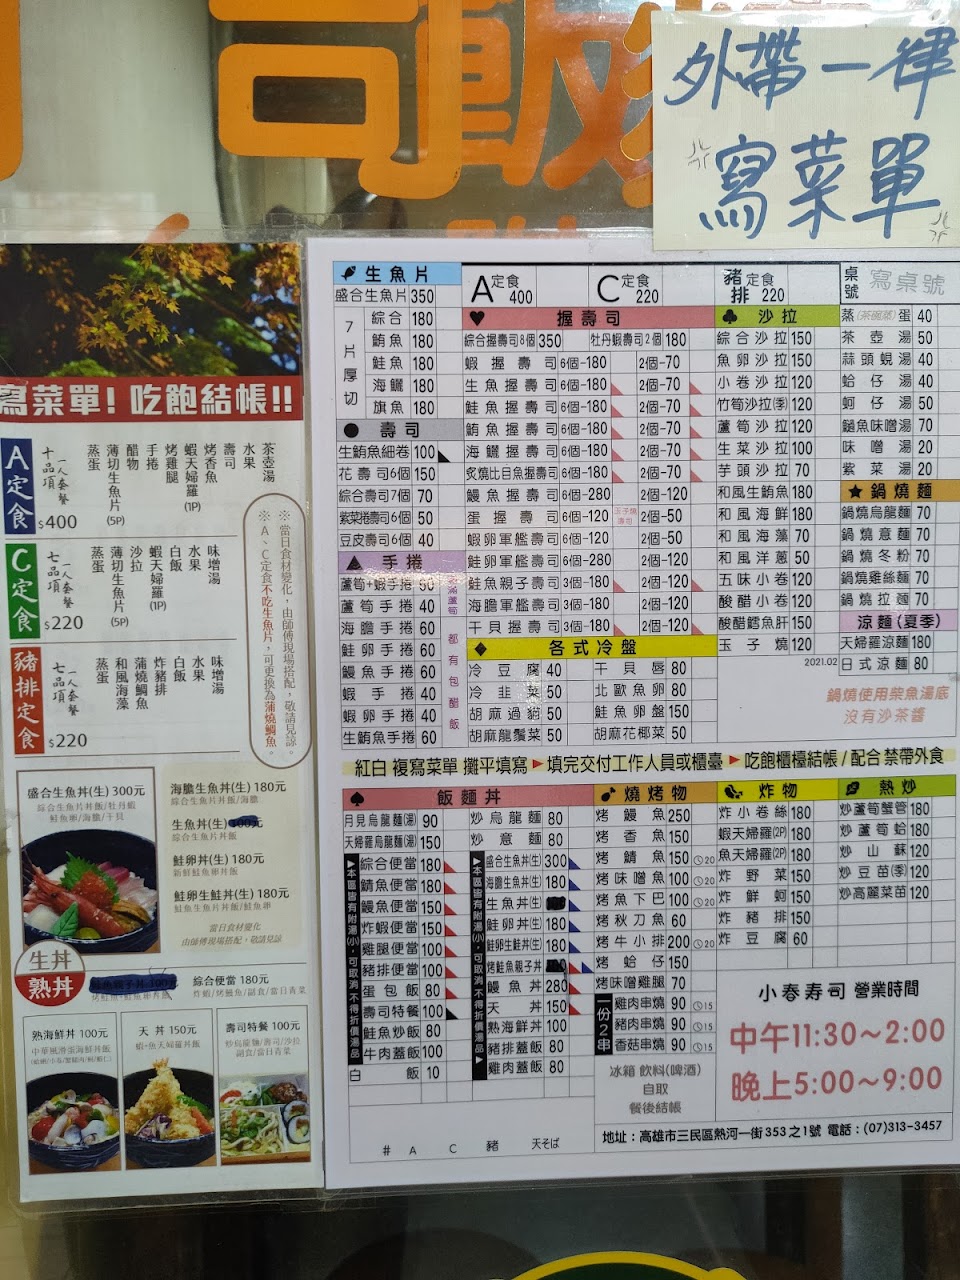 司飯
外帶一律
寫菜單
寫菜單! 吃飽結帳!!
A定食
十品項
一人套餐
$400
茶壺湯
水果
壽司
烤香魚
蝦天婦羅(1P)
烤雞腿
手捲
醋物
薄切生魚片(5P)
蒸蛋
C定食
七品項
一人套餐
$220
味增湯
水果
白飯
蝦天婦羅(1P)
沙拉
薄切生魚片(5P)
蒸蛋
豬排定食
七品項
一人套餐
$220
味增湯
水果
白飯
炸豬排
蒲燒鯛魚
和風海藻
蒸蛋
※當日食材變化，由師傅現場搭配，敬請見諒。
※A、C定食不吃生魚片，可更換為蒲燒鯛魚。
盛合生魚丼(生) 300元
綜合生魚片丼飯/牡丹蝦
鮭魚卵/海膽/干貝
海膽生魚丼(生) 180元
綜合生魚片丼飯/海膽
生魚丼(生)
綜合生魚片丼飯
鮭卵丼(生) 180元
新鮮鮭魚卵丼飯
鮭卵生鮭丼(生) 180元
鮭魚生魚片丼飯/鮭魚卵
當日食材變化
由師傅現場搭配，敬請見諒
生丼
熟丼
綜合便當 180元
炸蝦/烤鰻魚/副食/當日青菜
熟海鮮丼 100元
中華風滑蛋海鮮丼飯
天丼 150元
蝦+魚天婦羅丼飯
壽司特餐 100元
炒烏龍麵/壽司/沙拉
副食/當日青菜
生魚片
盛合生魚片 350
7片厚切
綜合 180
鮪魚 180
鮭魚 180
海鱺 180
旗魚 180
壽司
生鮪魚細卷 100
花壽司6個 150
綜合壽司7個 70
紫菜捲壽司6個 50
豆皮壽司6個 40
手捲
蘆筍+蝦手捲 60
蘆筍手捲 40
海膽手捲 60
鮭卵手捲 60
鰻魚手捲 60
蝦手捲 40
蝦卵手捲 40
生鮪魚手捲 60
都有包醋飯
A定食 400
C定食 220
豬排定食 220
桌號 寫桌號
握壽司
綜合握壽司8個 350
牡丹蝦壽司2個 180
蝦握壽司 6個-180 2個-70
生魚握壽司 6個-180 2個-70
鮭魚握壽司 6個-180 2個-70
鮪魚握壽司 6個-180 2個-70
海鱺握壽司 6個-180 2個-70
炙燒比目魚握壽司 6個-180 2個-70
鰻魚握壽司 6個-280 2個-120
蛋握壽司 6個-120 2個-50
蝦卵軍艦壽司 6個-120 2個-60
鮭卵軍艦壽司 6個-280 2個-120
鮭魚親子壽司 3個-180 2個-120
海膽軍艦壽司 3個-180 2個-120
干貝握壽司 3個-180 2個-120
各式冷盤
冷豆腐 40
冷韭菜 50
胡麻過貓 50
胡麻龍鬚菜 50
干貝唇 80
北歐魚卵 80
鮭魚卵盤 150
胡麻花椰菜 50
沙拉
綜合沙拉 150
魚卵沙拉 150
小卷沙拉 120
竹筍沙拉(季) 120
蘆筍沙拉 120
生菜沙拉 100
芋頭沙拉 70
和風生鮪魚 180
和風海鮮 180
和風海藻 70
和風洋蔥 50
五味小卷 120
酸醋小卷 120
酸醋鱈魚肝 150
玉子燒 120
蒸(茶碗蒸)蛋 40
茶壺湯 50
蒜頭蜆湯 40
蛤仔湯 40
蚵仔湯 50
鮭魚味噌湯 70
味噌湯 20
紫菜湯 20
鍋燒麵
鍋燒烏龍麵 70
鍋燒意麵 70
鍋燒冬粉 70
鍋燒雞絲麵 70
鍋燒拉麵 70
涼麵(夏季)
天婦羅涼麵 180
日式涼麵 80
2021.02
鍋燒使用柴魚湯底
沒有沙茶醬
紅白 複寫菜單 攤平填寫 ▶ 填完交付工作人員或櫃臺 ▶ 吃飽櫃臺結帳 / 配合 禁帶外食
飯麵丼
月見烏龍麵(湯) 90
天婦羅烏龍麵(湯) 150
▶本區皆有附湯(小)，可取消 不得折價湯品
綜合便當 180
鯖魚便當 180
鰻魚便當 150
炸蝦便當 150
雞腿便當 100
豬排便當 100
蛋包飯 80
壽司特餐 100
鮭魚炒飯 80
牛肉蓋飯 100
白飯 10
炒烏龍麵 80
炒意麵 80
▶本區皆有附湯(小)，可取消 不得折價湯品
盛合生魚丼(生) 300
海膽生魚丼(生) 180
生魚丼(生)
鮭卵丼(生) 180
鮭卵生鮭丼(生) 180
烤鮭魚親子丼
鰻魚丼 280
天丼 150
熟海鮮丼 100
豬排蓋飯 80
雞肉蓋飯 80
燒烤物
烤鰻魚 250
烤香魚 150
烤鯖魚 150 20
烤味噌魚 100 20
烤魚下巴 100 20
烤秋刀魚 60
烤牛小排 200 20
烤蛤仔 150
烤味噌雞腿 70
一份2串
雞肉串燒 90 15
豬肉串燒 90 15
香菇串燒 90 15
冰箱 飲料(啤酒)
自取
餐後結帳
炸物
炸小卷絲 180
蝦天婦羅(2P) 180
魚天婦羅(2P) 180
炸野菜 150
炸鮮蚵 150
炸豬排 150
炸豆腐 60
熱炒
炒蘆筍蟹管 180
炒蘆筍蛤 180
炒山蘇 120
炒豆苗(季) 120
炒高麗菜苗 120
小春壽司 營業時間
中午11:30～2:00
晚上5:00～9:00
地址：高雄市三民區熱河一街353之1號 電話：(07)313-3457
# A C 豬 天そば